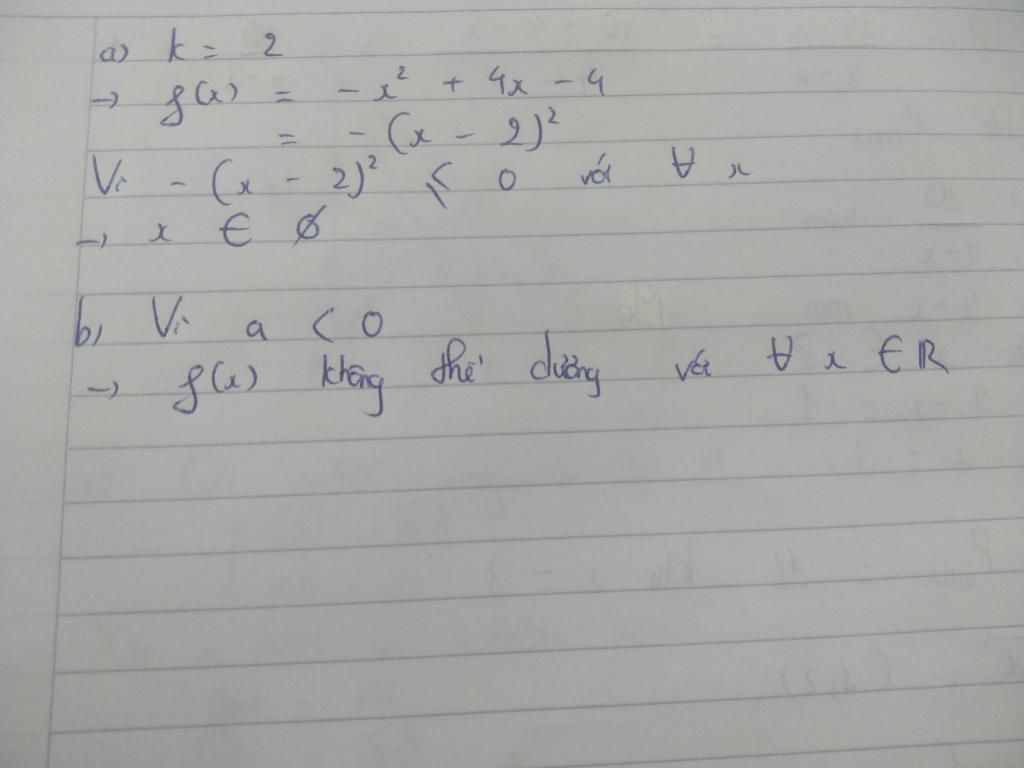 a) k = 2
→ f(x) = - x² + 4x - 4
= - (x - 2)²
Vì - (x - 2)² ≤ 0 với ∀ x
→ x ∈ ∅
b, Vì a < 0
→ f(x) không thể dương với ∀ x ∈ R